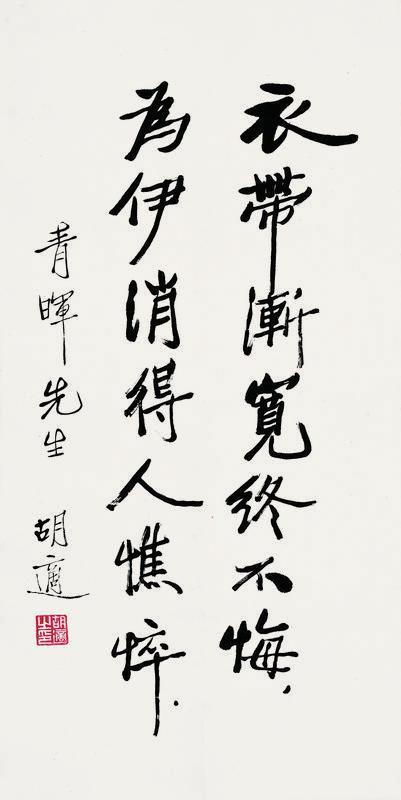 衣帶漸寬終不悔，
為伊消得人憔悴．
青暉先生
胡適
胡適之印